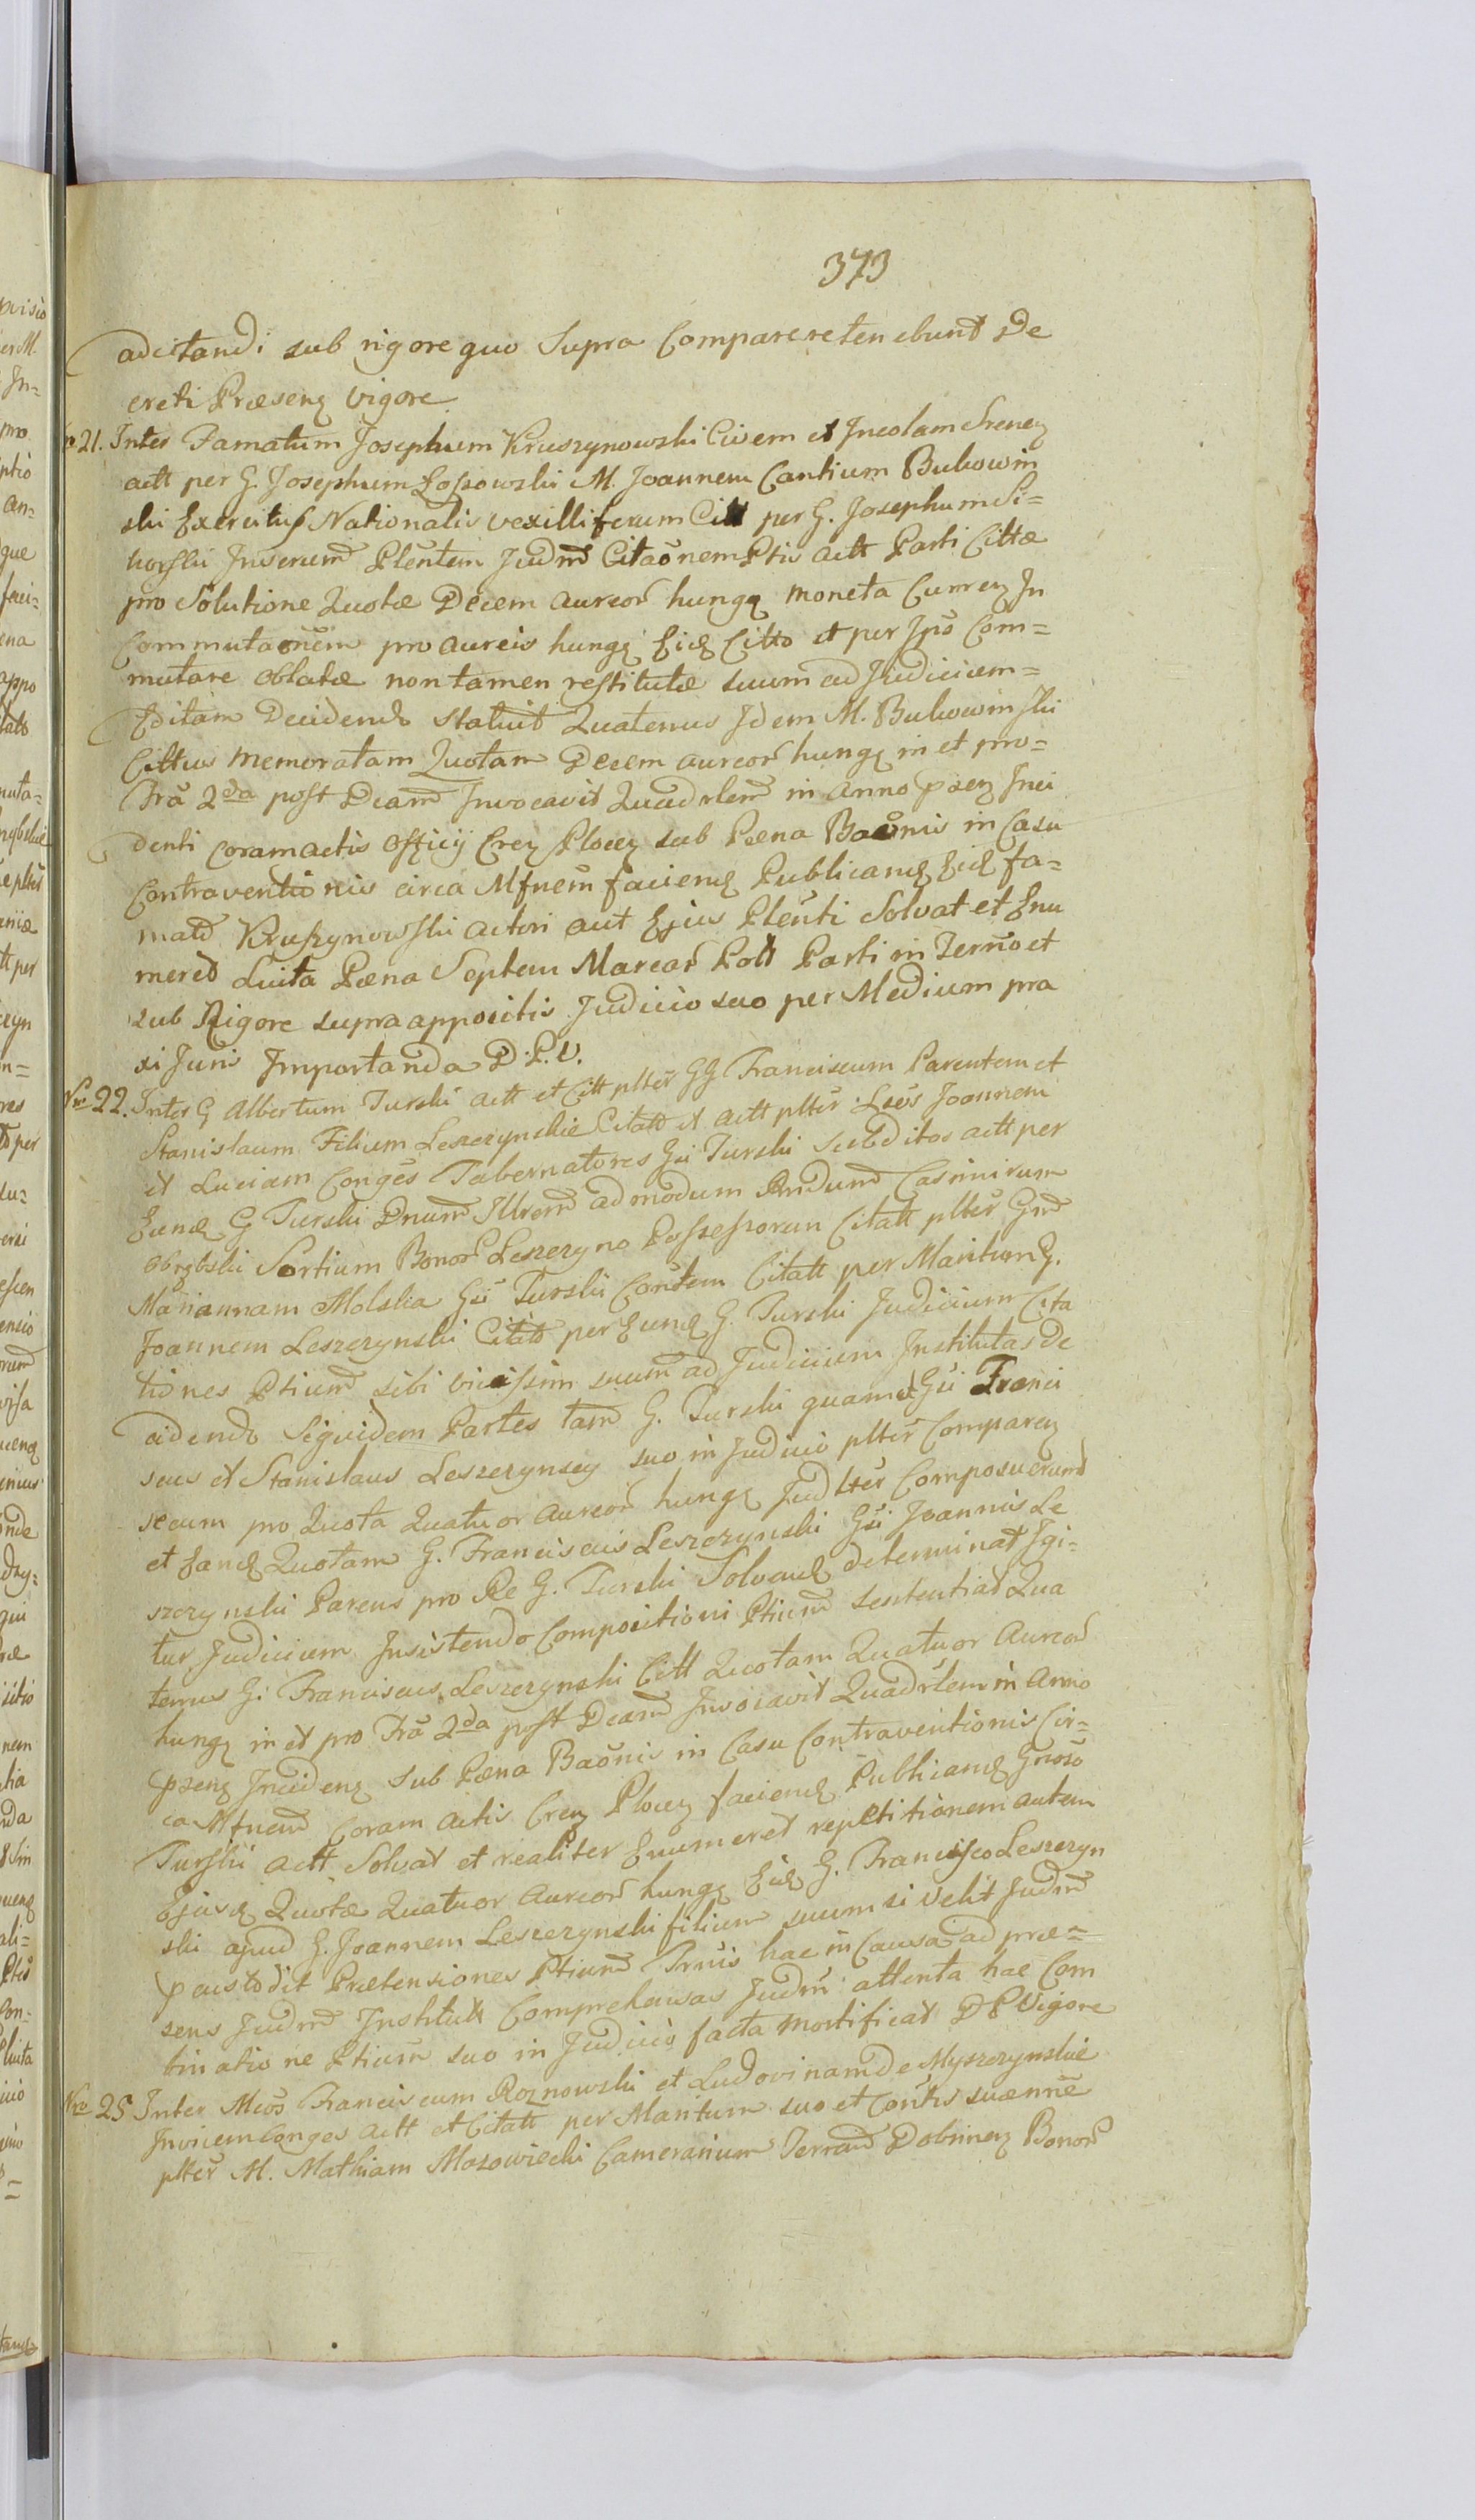 373
adcitandi sub rigore quo Supra Comparere tenebunt De
creti Præsenz vigore
21. Inter Famatum Josephum Kruszynowski Civem et Incolam Srenen
actt per G. Josephum Lossowski M. Joannem Cantium Bukowin
ski Exercitus Nationalis vexilliferum Citt per G. Josephum Si=
korski Juserum Plentem Judm Citaõnem Ptis actt Parti Cittæ
pro Solutione Quotæ Decem aureor hungq moneta Currenz In
Commutaonem pro aureis hungq Eidq Citto et per Ipõ Com=
mutare oblatæ non tamen restitutæ suum ad Judicium=
Editam Decidendo statuit Quatenus Idem M. Bukowinski
Cittus memoratam Quotam Decem aureor hungq in et pro=
Fra 2da post Dcam Invocavit Quadrlem in Anno psenz Inci
denti coram actis officij Crenz Plocenz sub Pæna Baõnis in Casu
Contraventionis circa Mfnem faciendq Publicandq Eidq fa=
mato Kruszynowski actori aut Ejus Plenti Solvat et Enu
meret Luita Pæna Septem Marcar Poll Parti in Termõ et
sub Rigore supra appositis Judicio suo per Medium pra
xi Juris Importanda D. P. V.
Nro 22. Inter G Albertum Turski actt et Citt plter GG Franciscum Parentem et
Stanislaum Filium Leszczynskie Citatt et actt plter Lsos Joannem
et Luciam Conges Tabernatores Gsi Turski subditos actt per
Eundq G Turski Dnum Illrem admodum Rndum Casimirum
Obrębski Sortium Bonor Leszczyno Possessorem Citatt plter Gsm
Mariannam Molska Gsi Turski Contem Citatt per Maritum G.
Joannem Leszczynski Citatt per Eundq G. Turski Judicium Cita
tiones Ptium sibi vicissim suum ad Judicium Institutas De
cidendo Siquidem Partes tam G. Turski quam et Gsi Franci
scus et Stanislaus Leszczynscy suo in Judicio plter Comparenz
secum pro Quota Quatuor aureor hungq Judlter Composuerunt
et Eandq Quotam G. Franciscus Leszczynski Gsi Joannis Le
szczynski Parens pro Re G. Turski Solvendq determinat Igi=
tur Judicium Insistendo Compositioni Ptium sententiat Qua
tenus G. Franciscus Leszczynski Citt Quotam Quatuor Aureor
hungq in et pro Fra 2da post Dcam Invocavit Quadrlem in Anno
psenz Incidenz sub Pæna Baõnis in Casu Contraventionis Cir=
ca Mfnem Coram Actis Crenz Plocenz faciendq Publicandq Gnoso
Turski actt Solvat et realiter Enumeret repetitionem autem
Ejusdq Quotæ Quatuor Aureor hungq Eidq G. Francisco Leszczyn
ski apud G. Joannem Leszczynski filium suum si velit Judm
pcustodit Prætensiones Ptium Prnis hac in Causa ad præ=
sens Judm Institutis Comprehensas Judm attenta hac Com
binatione Ptium suo in Judicio facta mortificat D P Vigore
Nro 25 Inter Mcos Franciscum Roznowski et Ludovinam de Myszczynskie
Invicem Conges actt et Citatt per Maritum suo et Contis suæ nne
plter M. Mathiam Mazowiecki Camerarium Terrar Dobrinenz Bonor